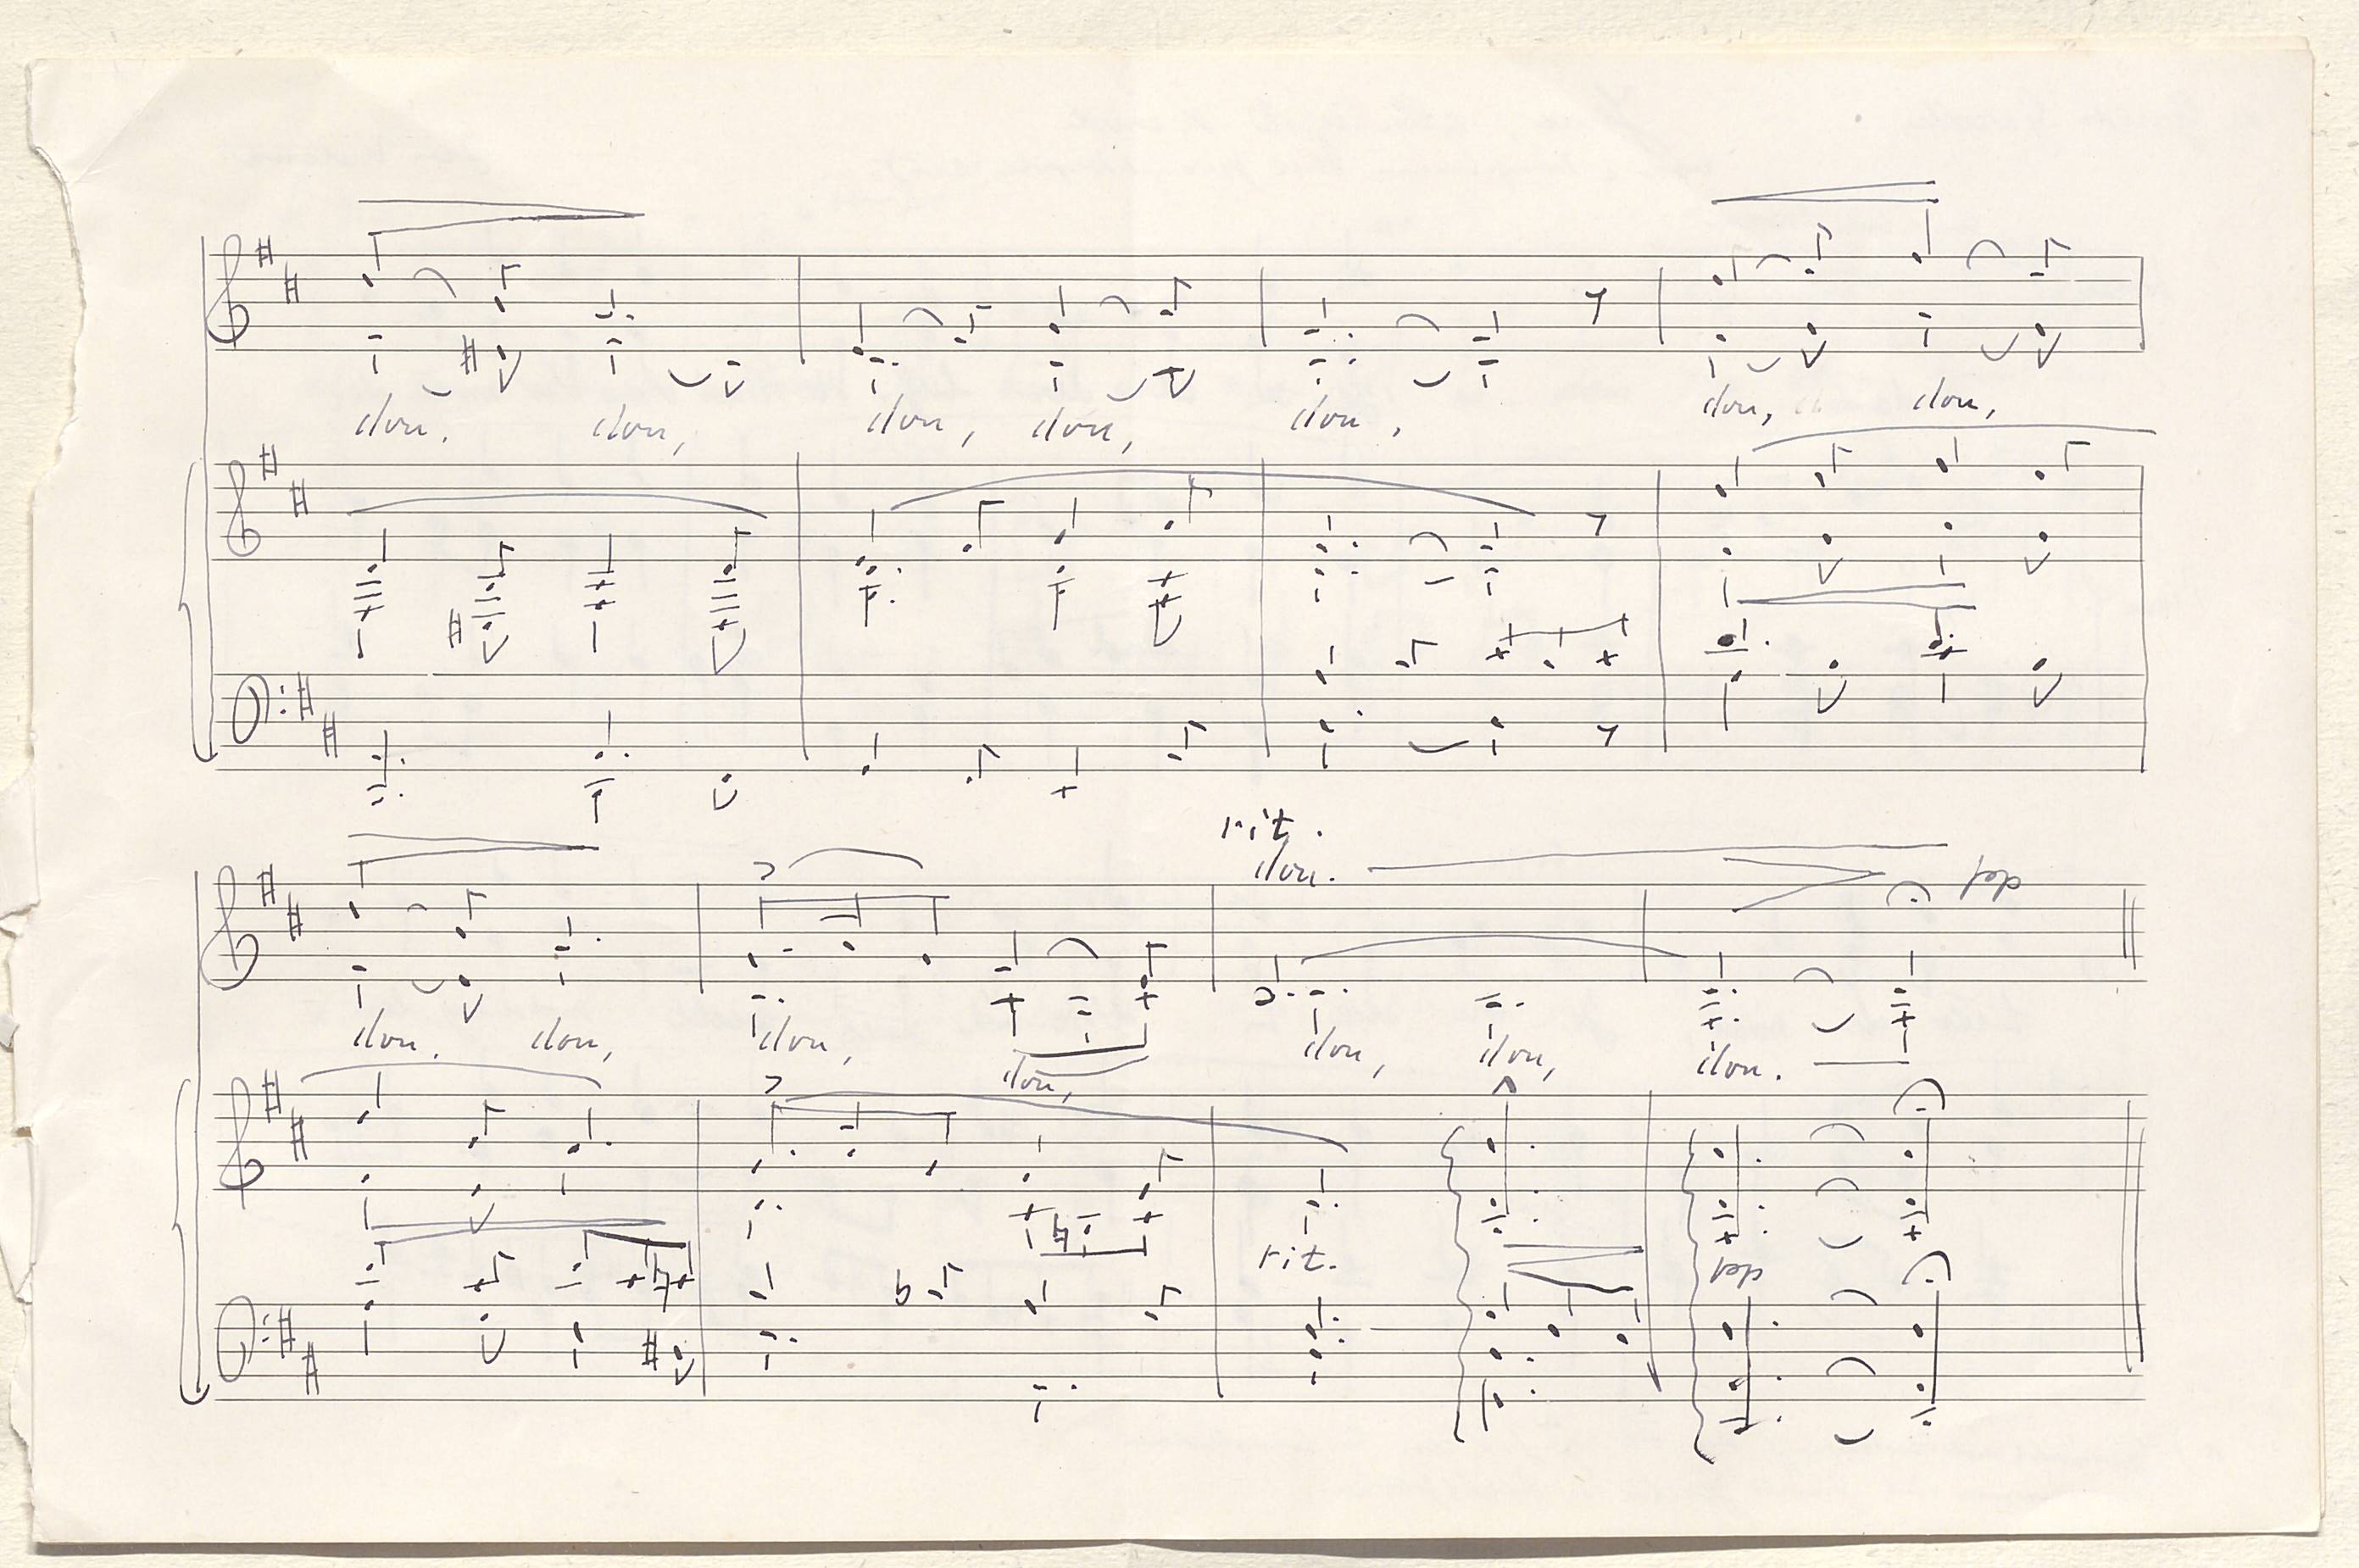 don, don, don, don, don, don, don,
rit.
don.
pp
don, don, don, don, don, don, don.
rit.
pp